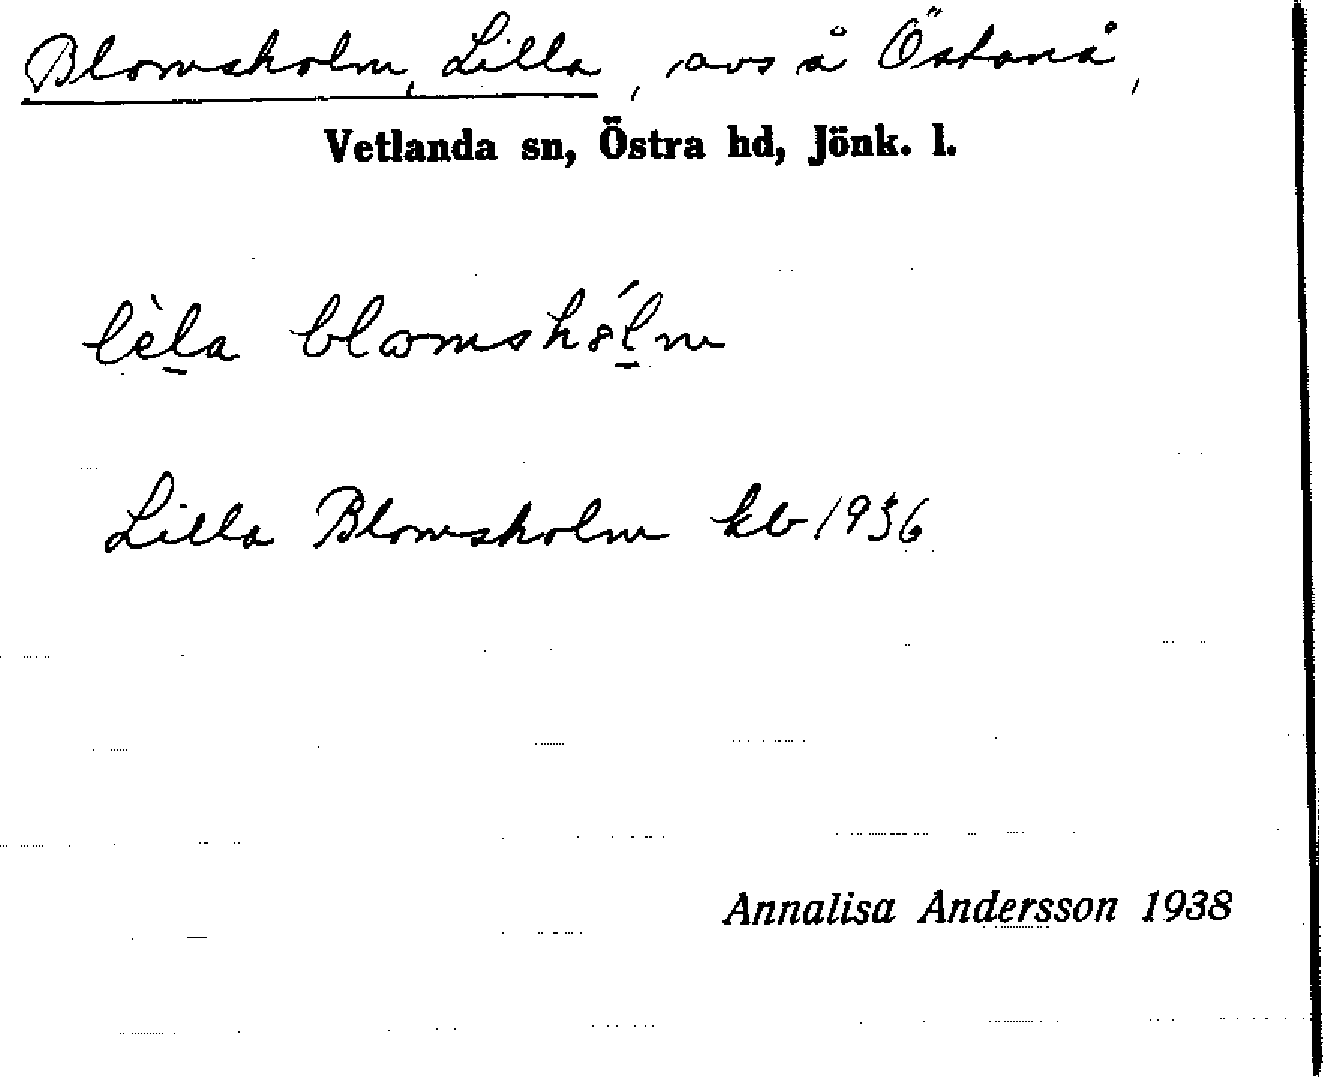 Blomsholm, Lilla, avs å Östanå,
Vetlanda sn, Östra hd, Jönk. l.
lèla blomshólm
Lilla Blomsholm kb 1936
Annalisa Andersson 1938